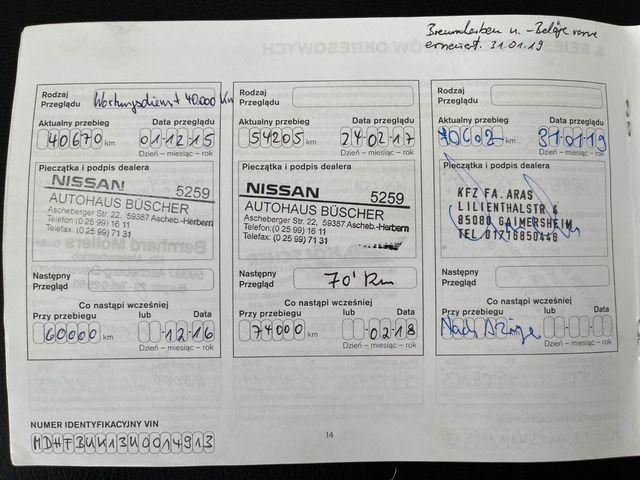 Bremsscheiben u. -Beläge vorne
erneuert. 31.01.19
Rodzaj
Przeglądu
Wartungsdienst 40.000 Km
Aktualny przebieg Data przeglądu
40670 km 01-12-15
Dzień – miesiąc – rok
Pieczątka i podpis dealera
NISSAN 5259
AUTOHAUS BÜSCHER
Ascheberger Str. 22, 59387 Ascheb.-Herbern
Telefon (0 25 99) 16 11
Telefax: (0 25 99) 71 31
Następny
Przegląd
Co nastąpi wcześniej
Przy przebiegu lub Data
60000 km 12-16
Dzień – miesiąc – rok
Rodzaj
Przeglądu
Aktualny przebieg Data przeglądu
54205 km 24-02-17
Dzień – miesiąc – rok
Pieczątka i podpis dealera
NISSAN 5259
AUTOHAUS BÜSCHER
Ascheberger Str. 22, 59387 Ascheb.-Herbern
Telefon:(0 25 99) 16 11
Telefax: (0 25 99) 71 31
Następny
Przegląd
70' Km
Co nastąpi wcześniej
Przy przebiegu lub Data
74000 km 02-18
Dzień – miesiąc – rok
Rodzaj
Przeglądu
Aktualny przebieg Data przeglądu
70602 km 31-01-19
Dzień – miesiąc – rok
Pieczątka i podpis dealera
KFZ FA. ARAS
LILIENTHALSTR 4
85080 GAIMERSHEIM
TEL 01716850448
Następny
Przegląd
Co nastąpi wcześniej
Przy przebiegu lub Data
Nach
Dzień – miesiąc – rok
NUMER IDENTYFIKACYJNY VIN
MDHFBUK13U0014913
14